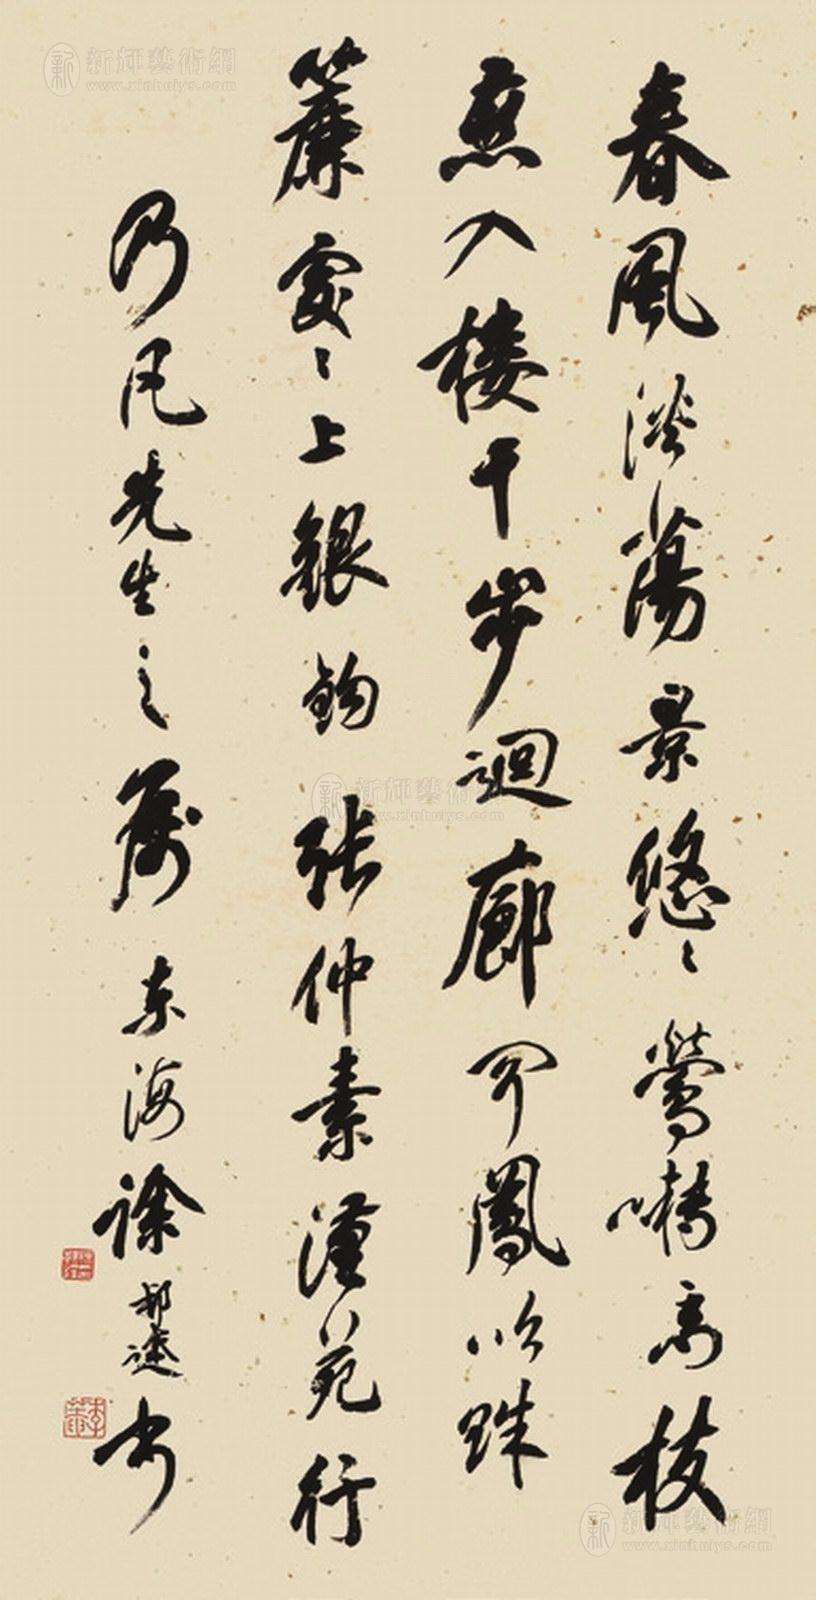 春風淡蕩景悠々鶯囀高枝
燕入樓千步迴廊聞鳳吹珠
簾處々上銀鈎張仲素漢苑行
乃凡先生之屬 東海徐邦達書
新輝藝術網
www.xinhuiys.com
新輝藝術網
www.xinhuiys.com
新輝藝術網
www.xinhuiys.com